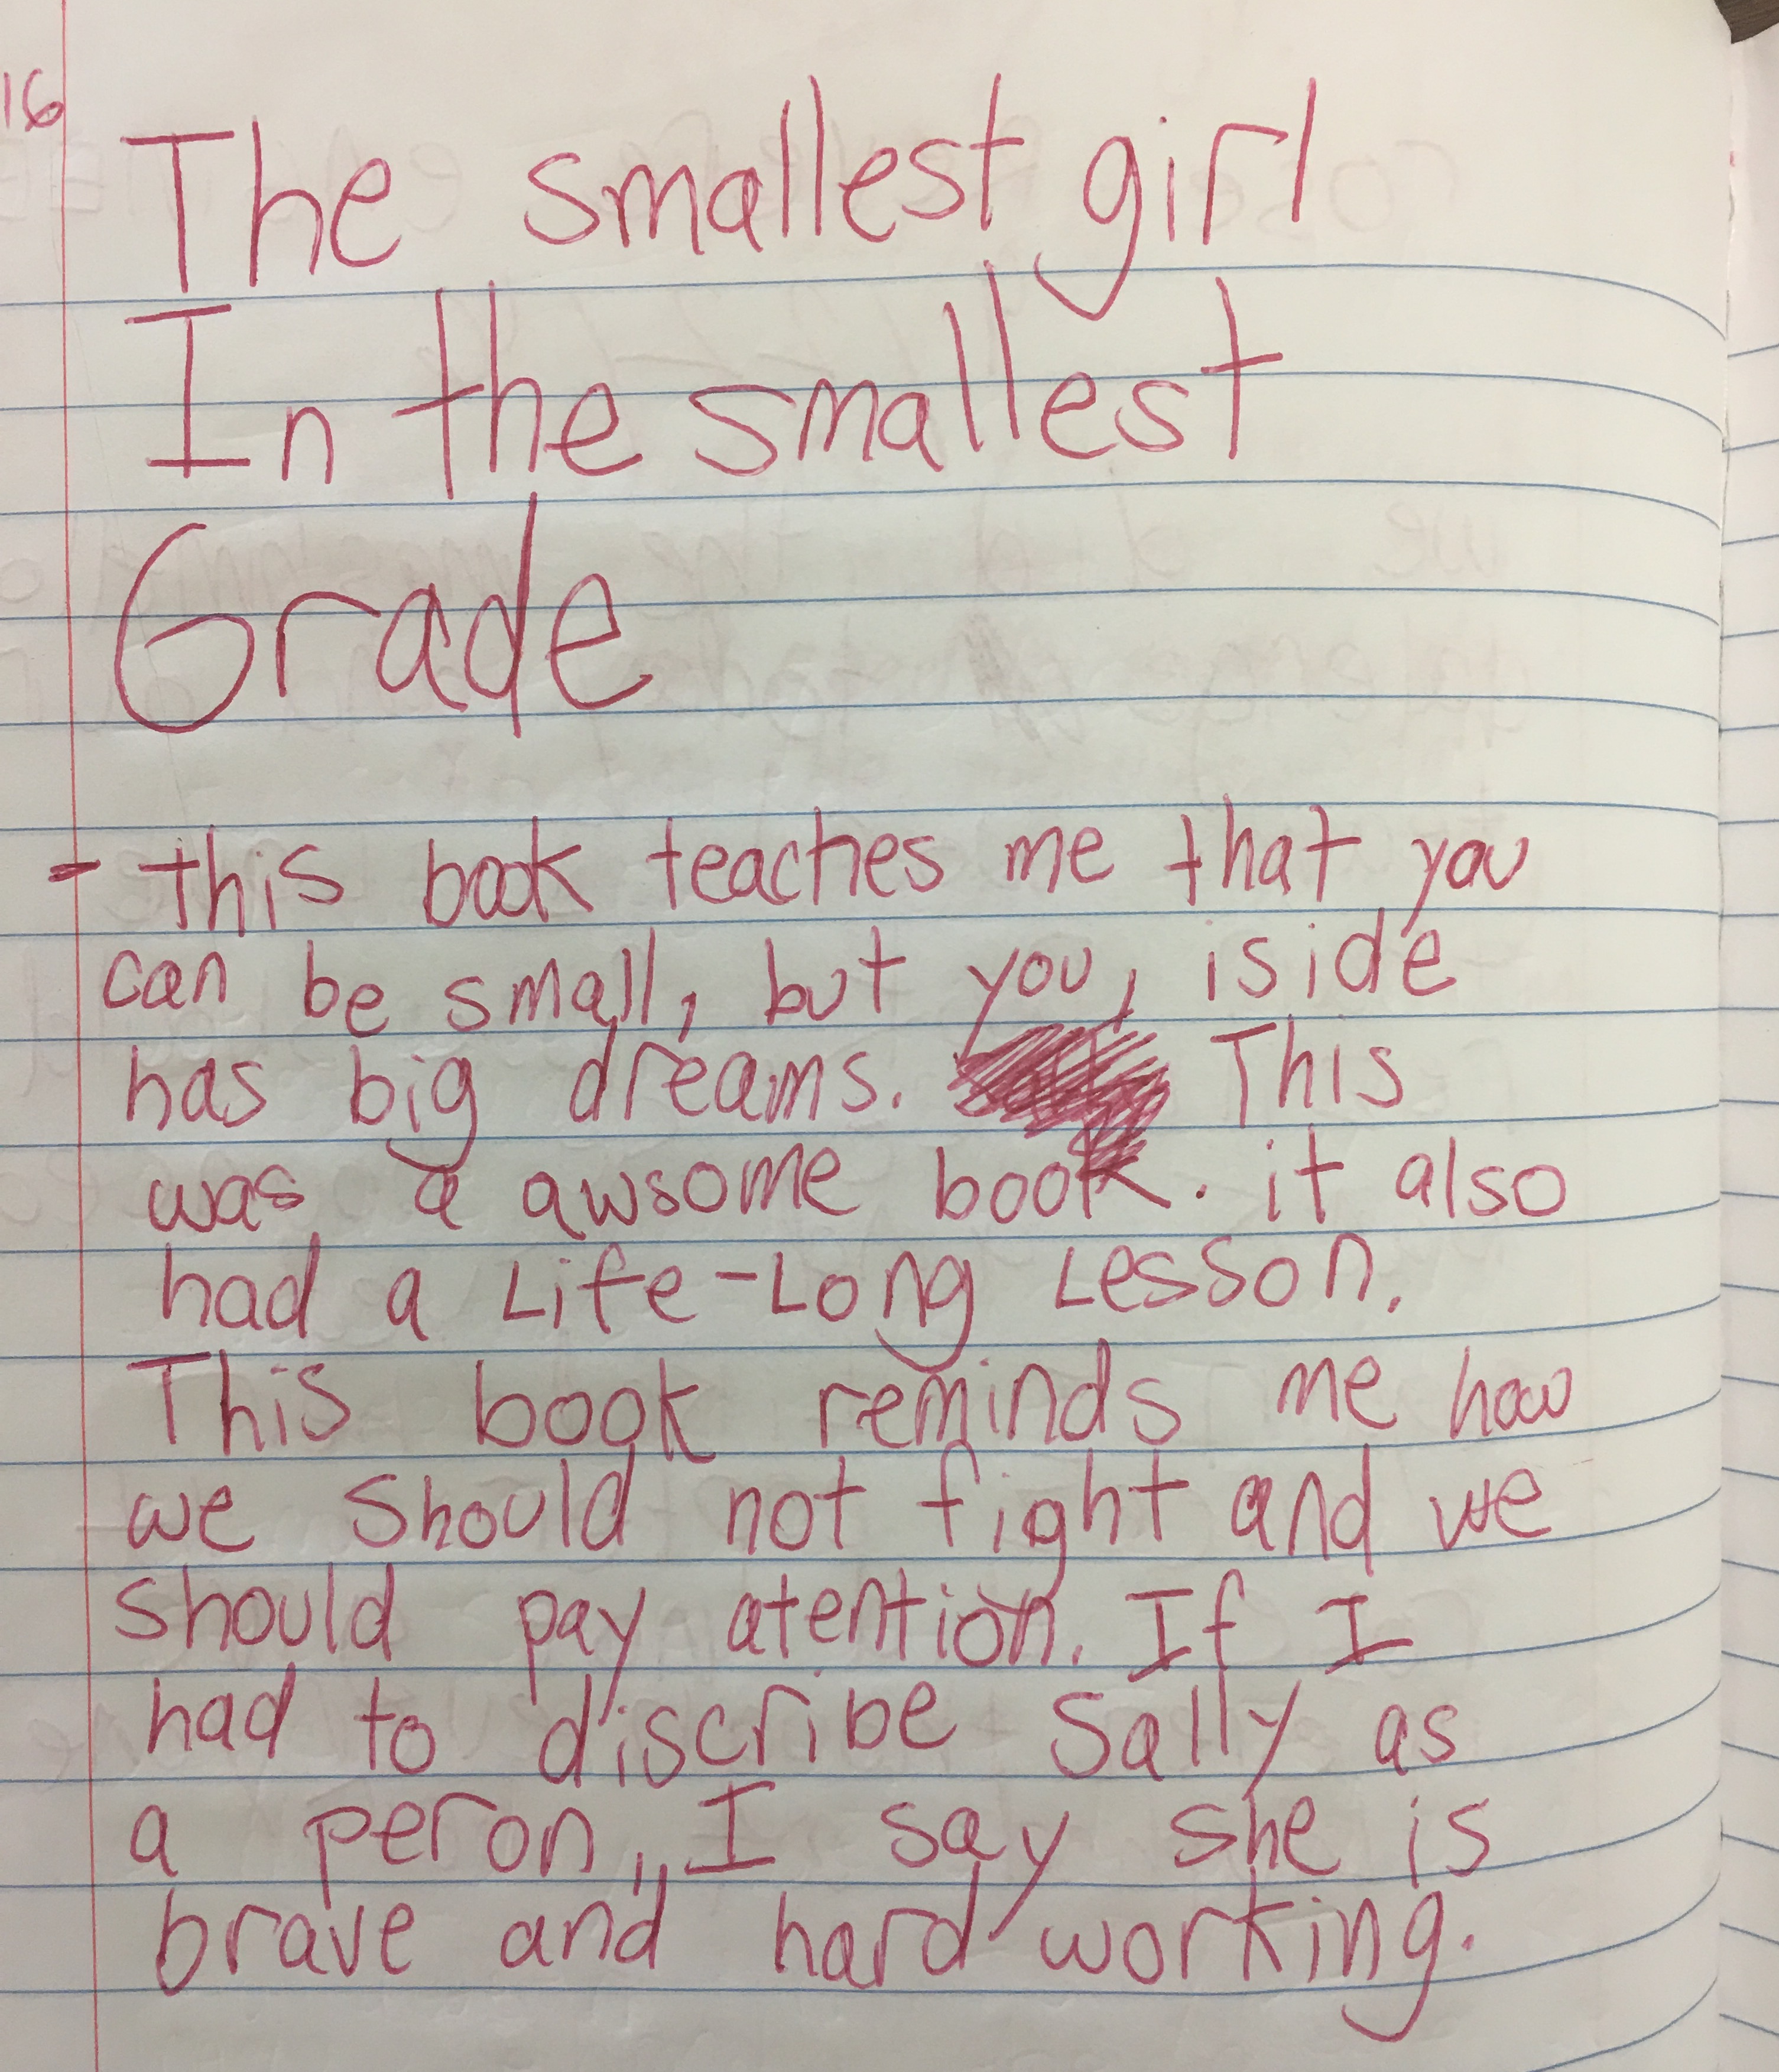 16
The smallest girl
In the smallest
Grade
- this book teaches me that you
can be small, but you, iside
has big dreams. This
was a awsome book. it also
had a Life-Long Lesson.
This book reminds me how
we should not fight and we
should pay atention. If I
had to discribe Sally as
a peron,, I say she is
brave and hard working.